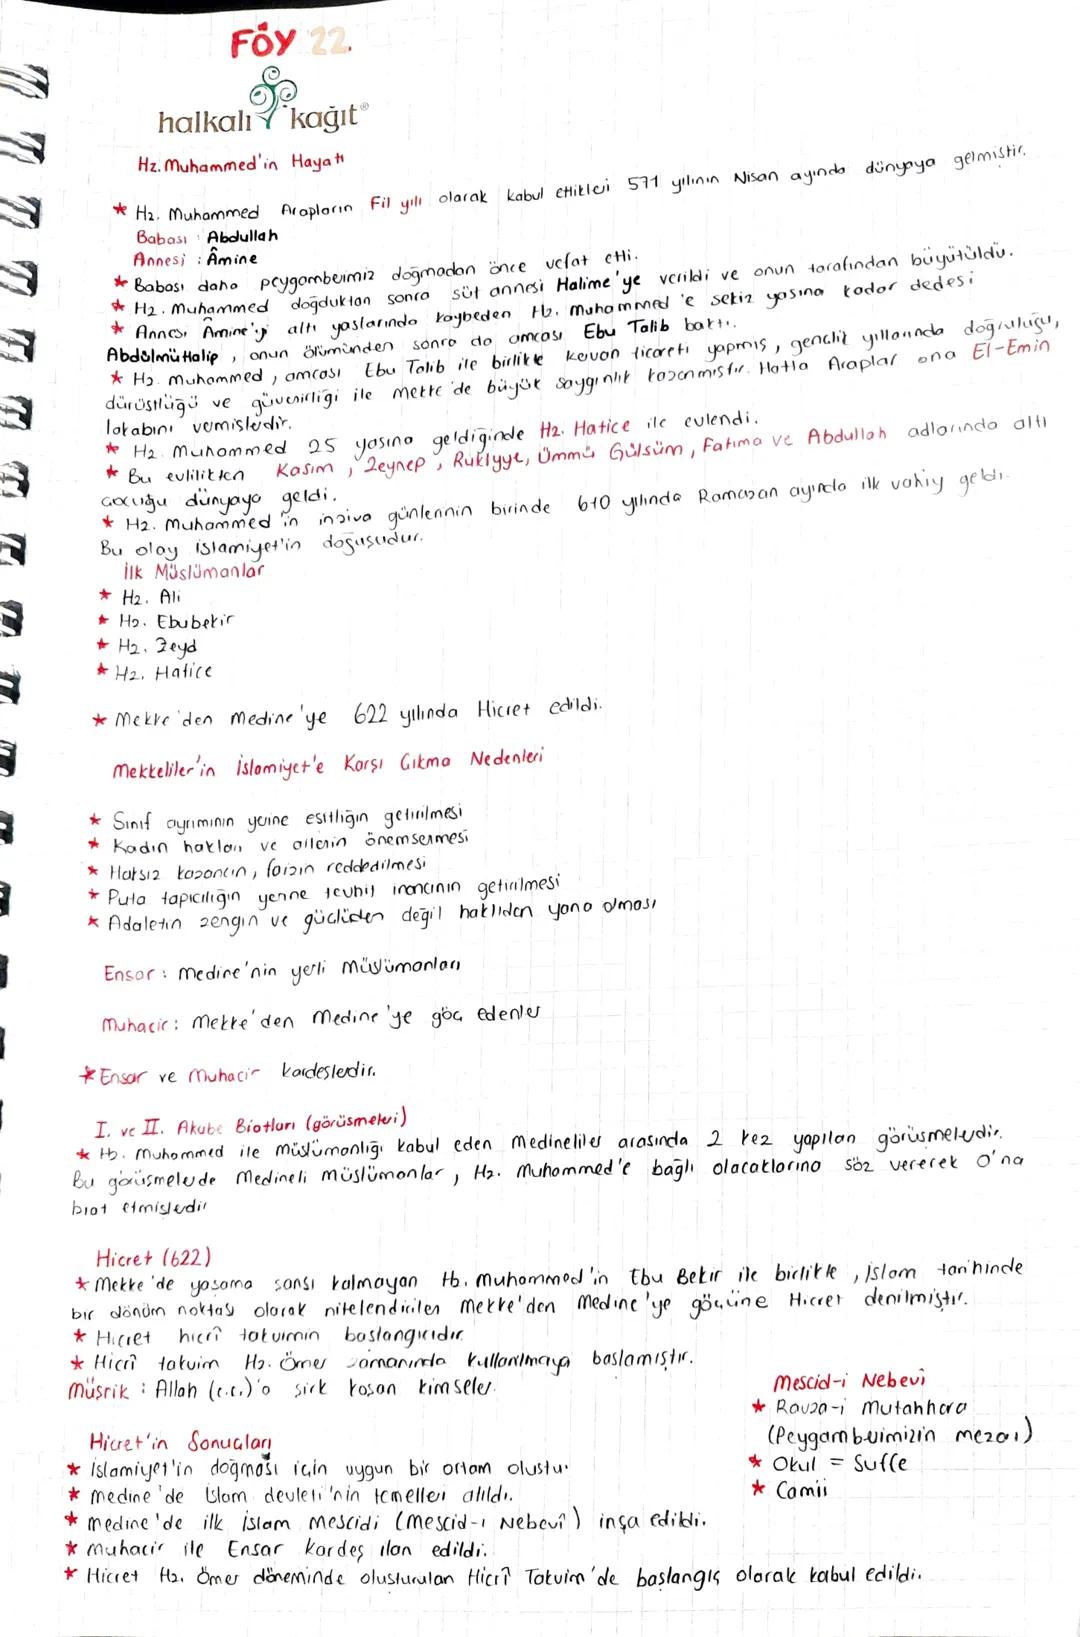 FÖY 22.
halkalı kağıt®
Hz. Muhammed'in Hayatı
* Hz. Muhammed Arapların Fil yılı olarak kabul ettikleri 571 yılının Nisan ayında dünyaya gelmiştir.
Babası : Abdullah
Annesi : Âmine
* Babası daha peygamberimiz doğmadan önce vefat etti.
* Hz. Muhammed doğduktan sonra süt annesi Halime'ye verildi ve onun tarafından büyütüldü.
* Annesi Âmine'yi altı yaşlarında kaybeden Hz. Muhammed'e sekiz yaşına kadar dedesi
Abdülmüttalip, onun ölümünden sonra da amcası Ebu Talib baktı.
* Hz. Muhammed, amcası Ebu Talib ile birlikte kervan ticareti yapmış, gençlik yıllarında doğruluğu,
dürüstlüğü ve güvenirliği ile Mekke'de büyük saygınlık kazanmıştır. Hatta Araplar ona El-Emin
lakabını vermişlerdir.
* Hz. Muhammed 25 yaşına geldiğinde Hz. Hatice ile evlendi.
* Bu evlilikten Kasım, Zeynep, Rukiyye, Ümmü Gülsüm, Fatıma ve Abdullah adlarında altı
çocuğu dünyaya geldi.
* Hz. Muhammed'in inziva günlerinin birinde 610 yılında Ramazan ayında ilk vahiy geldi.
Bu olay İslamiyet'in doğuşudur.
İlk Müslümanlar
* Hz. Ali
* Hz. Ebubekir
* Hz. Zeyd
* Hz. Hatice
* Mekke'den Medine'ye 622 yılında Hicret edildi.
Mekkeliler'in İslamiyet'e Karşı Çıkma Nedenleri
* Sınıf ayrımının yerine eşitliğin getirilmesi
* Kadın hakları ve ailenin önemsenmesi
* Haksız kazancın, faizin reddedilmesi
* Puta tapıcılığın yerine tevhit inancının getirilmesi
* Adaletin zengin ve güçlüden değil haklıdan yana olması
Ensar : Medine'nin yerli Müslümanları
Muhacir : Mekke'den Medine'ye göç edenler
* Ensar ve Muhacir kardeşlerdir.
I. ve II. Akabe Biatları (görüşmeleri)
* Hz. Muhammed ile Müslümanlığı kabul eden Medineliler arasında 2 kez yapılan görüşmelerdir.
Bu görüşmelerde Medineli Müslümanlar, Hz. Muhammed'e bağlı olacaklarına söz vererek O'na
biat etmişlerdir
Hicret (622)
* Mekke'de yaşama şansı kalmayan Hz. Muhammed'in Ebu Bekir ile birlikte, İslam tarihinde
bir dönüm noktası olarak nitelendirilen Mekke'den Medine'ye göçüne Hicret denilmiştir.
* Hicret hicrî takvimin başlangıcıdır
* Hicrî takvim Hz. Ömer zamanında kullanılmaya başlamıştır.
Müşrik : Allah (c.c.)'a şirk koşan kimseler.
Mescid-i Nebevî
* Ravza-i Mutahhara
(Peygamberimizin mezarı)
* Okul = Suffe
* Camii
Hicret'in Sonuçları
* İslamiyet'in doğması için uygun bir ortam oluştu.
* Medine'de İslam devleti'nin temelleri atıldı.
* Medine'de ilk İslam Mescidi (Mescid-i Nebevî) inşa edildi.
* Muhacir ile Ensar kardeş ilan edildi.
* Hicret Hz. Ömer döneminde oluşturulan Hicrî Takvim'de başlangıç olarak kabul edildi.